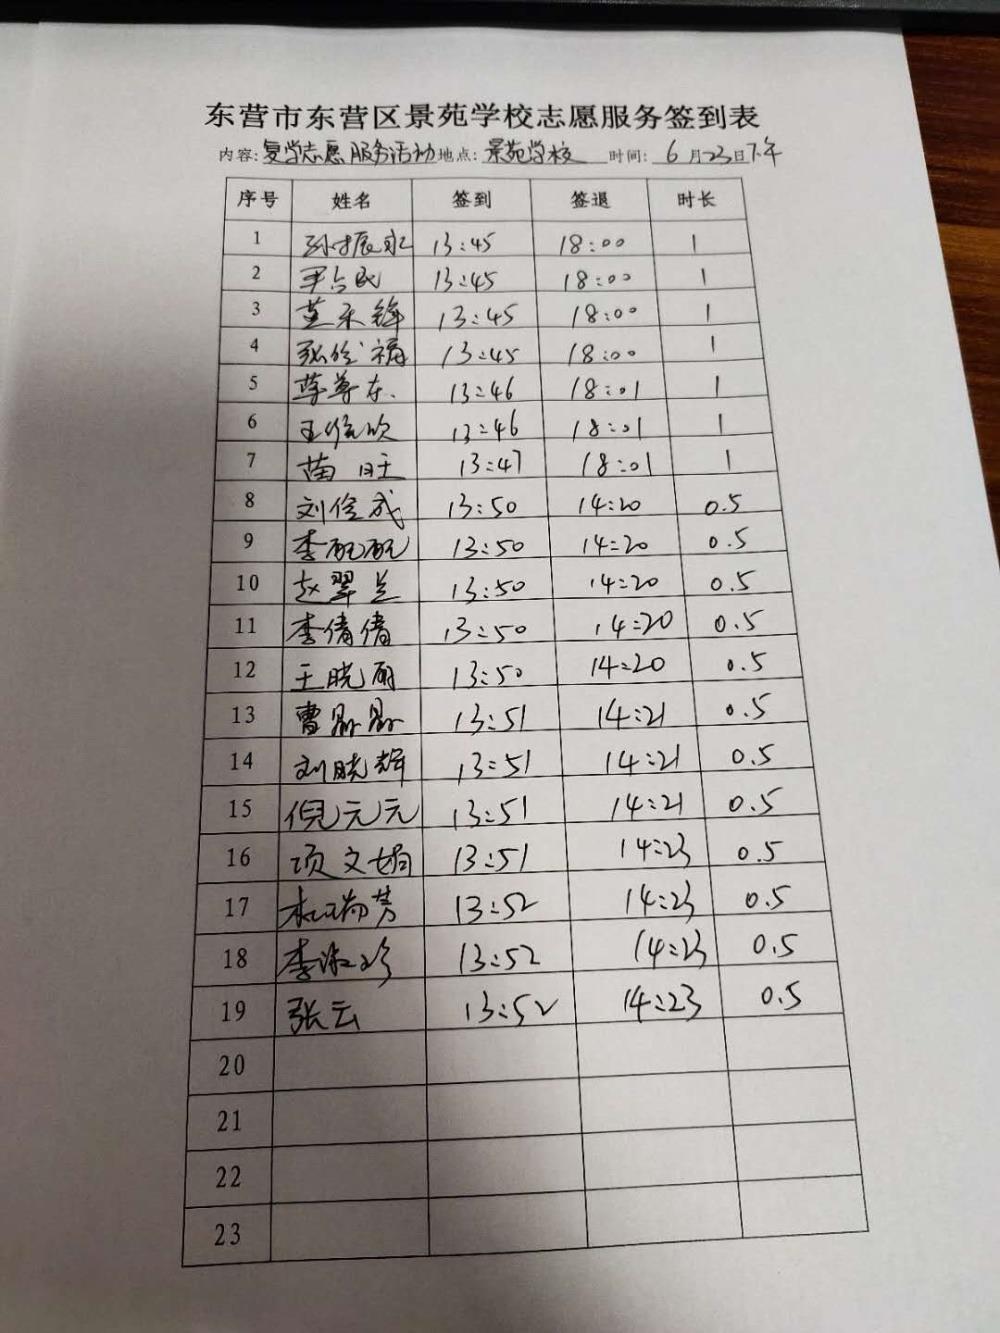 东营市东营区景苑学校志愿服务签到表
内容:复学志愿服务活动地点:景苑学校 时间:6月23日下午
序号 姓名 签到 签退 时长
1 孙振永 13:45 18:00 1
2 13:45 18:00 1
3 13:45 18:00 1
4 13:45 18:00 1
5 13:46 18:01 1
6 13:46 18:01 1
7 苗旺 13:47 18:01 1
8 刘俊成 13:50 14:20 0.5
9 李配配 13:50 14:20 0.5
10 赵翠兰 13:50 14:20 0.5
11 李倩倩 13:50 14:20 0.5
12 王晓丽 13:50 14:20 0.5
13 曹 13:51 14:21 0.5
14 刘晓辉 13:51 14:21 0.5
15 倪元元 13:51 14:21 0.5
16 项文娟 13:51 14:23 0.5
17 杜瑞芳 13:52 14:23 0.5
18 李淑珍 13:52 14:23 0.5
19 张云 13:52 14:23 0.5
20
21
22
23